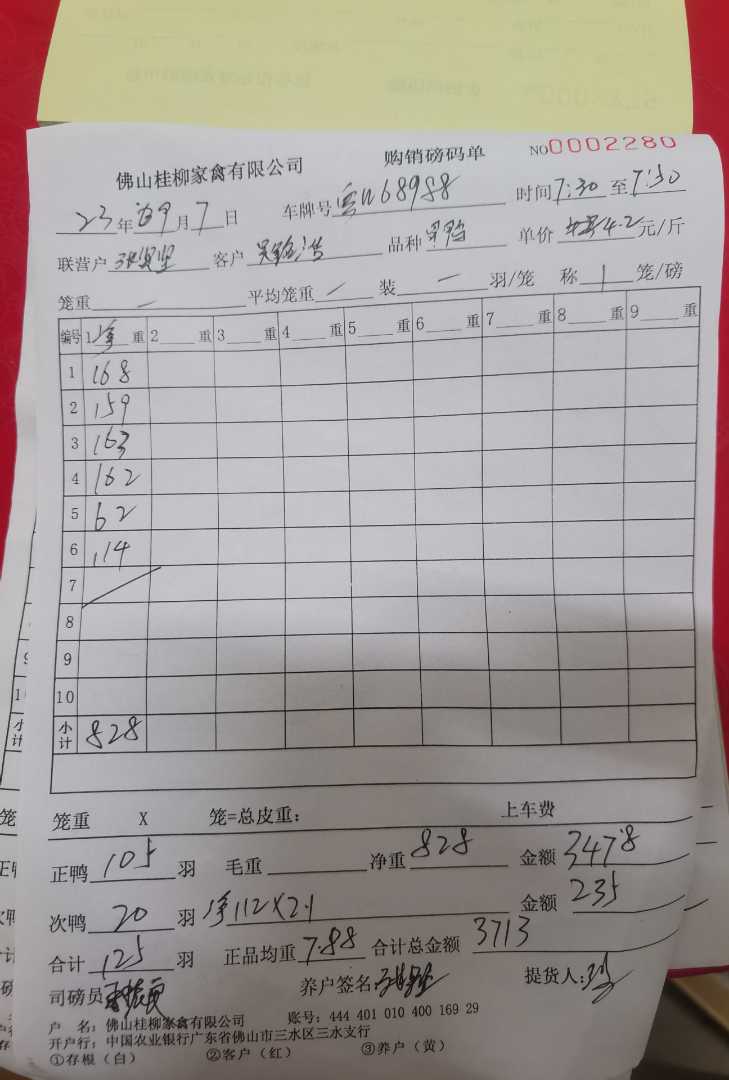 佛山桂柳家禽有限公司 购销磅码单 NO0002280
23年 9月7日 车牌号 W68988 时间7:30至7:50
联营户 客户 品种 单价 4.2元/斤
笼重 — 平均笼重 — 装 — 羽/笼 称 1 笼/磅
编号 1净重 2 重 3 重 4 重 5 重 6 重 7 重 8 重 9 重
1 168
2 159
3 163
4 162
5 62
6 114
7
8
9
10
小计 828
笼重 X 笼=总皮重: 上车费
正鸭 105 羽 毛重 净重 828 金额 3478
次鸭 20 羽 净112X2.1 金额 235
合计 125 羽 正品均重 7.88 合计总金额 3713
司磅员 养户签名 提货人:
户 名: 佛山桂柳家禽有限公司 账号: 444 401 010 400 169 29
开户行: 中国农业银行广东省佛山市三水区三水支行
①存根(白) ②客户(红) ③养户(黄)